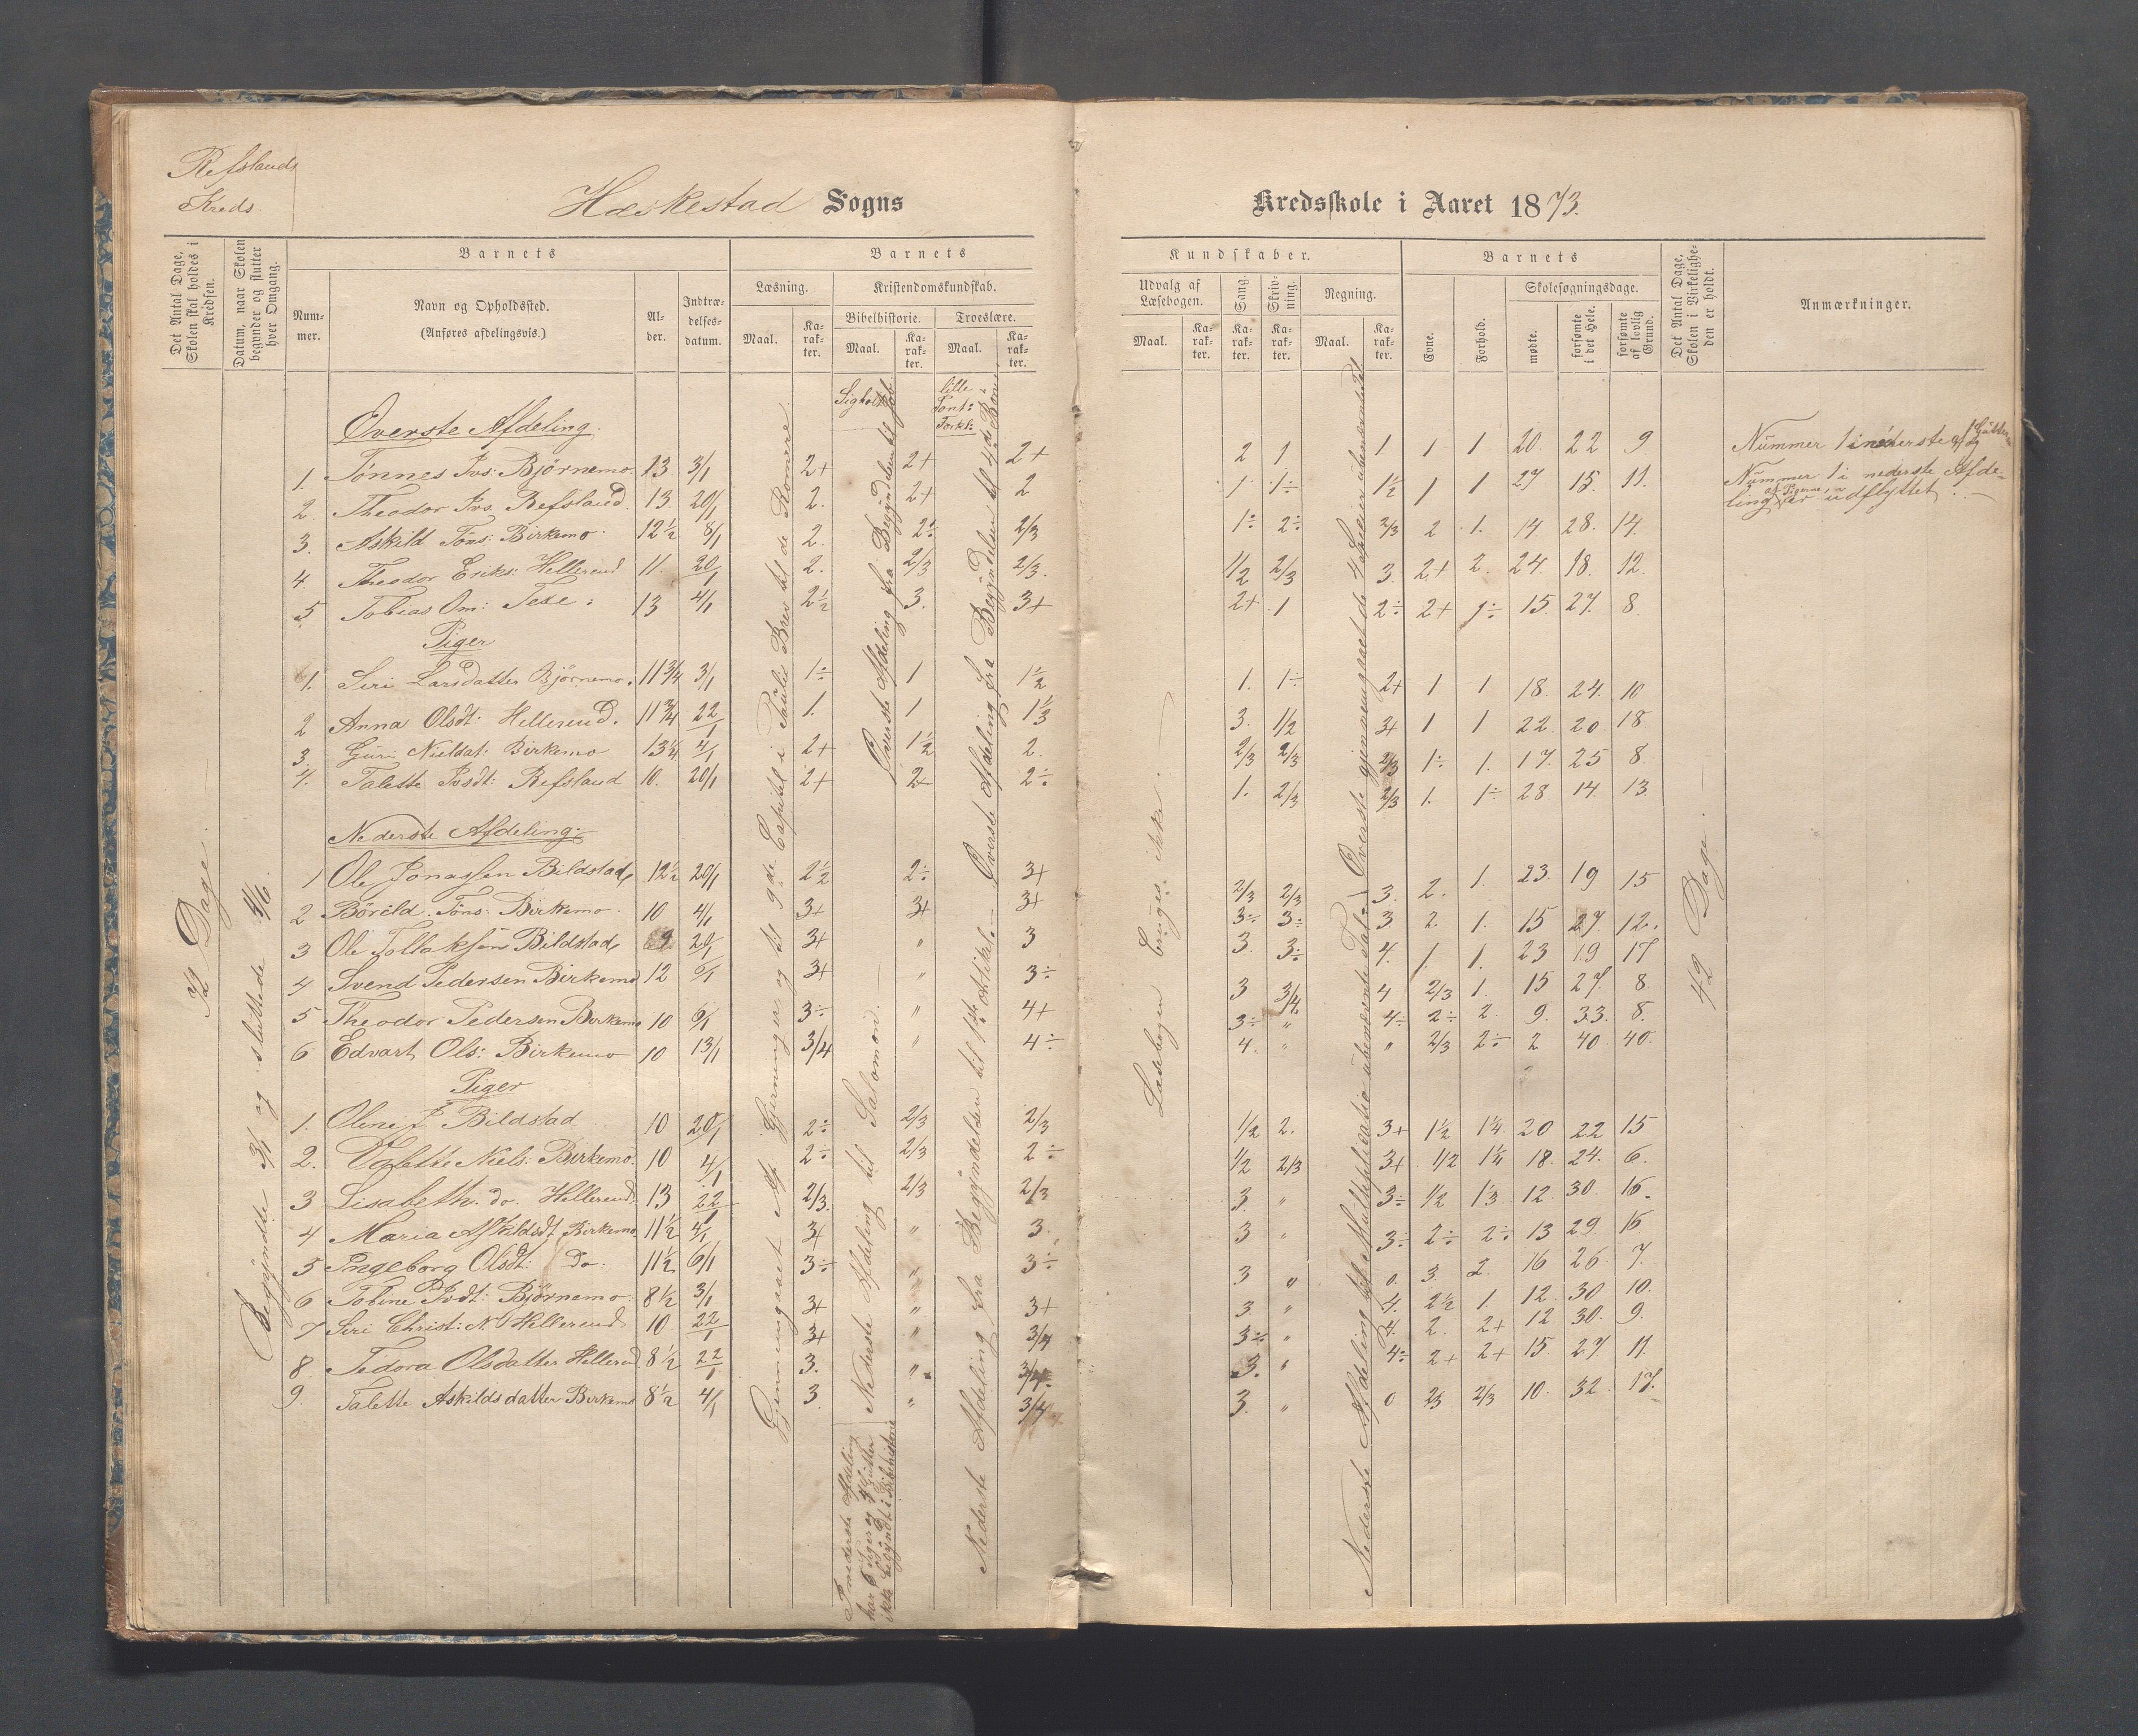 Refslands
Kreds.
Heskestad Sogns
Kredsskole i Aaret 1873.
Det Antal Dage, Skolen skal holdes i Kredsen.
Datum, naar Skolen begynder og slutter hver Omgang.
Barnets
Nummer.
Navn og Opholdssted.
(Anføres afdelingsvis.)
Alder.
Indtrædelsesdatum.
Barnets
Læsning.
Maal.
Karakter.
Kristendomskundskab.
Bibelhistorie.
Maal.
Karakter.
Troeslære.
Maal.
Karakter.
Kundskaber.
Udvalg af Læsebogen.
Maal.
Karakter.
Sang.
Karakter.
Skrivning.
Karakter.
Regning.
Maal.
Karakter.
Barnets
Evne.
Forhold.
Skolesøgningsdage.
mødte.
forsømte i det Hele.
forsømte af lovlig Grund.
Det Antal Dage, Skolen i Virkeligheden er holdt.
Anmærkninger.
Øverste Afdeling.
1. Tønnes Ivs: Bjørnemo. 13. 3/1 2+ 2+ 2+ 2 1. 1 1 1 20. 22 9.
2. Theodor Ivs. Refsland. 13. 20/1 2. 2+ 2 1. 1÷ 1½ 1 1 27 15. 11.
3. Askild Tøns: Birkemo. 12½ 8/1 2. 2÷ 2/3 1÷ 2÷ 2/3 2 1. 14. 28. 14.
4. Theodor Eriks: Hellerend 11. 20/1 2. 2/3 2/3. 1/2 2/3 3. 2+ 2. 24. 18. 12.
5 Tobias Om: 13 4/1 2½ 3. 3+ 2+ 1 2÷ 2+ 1÷ 15. 27. 8.
Piger
1. Siri Larsdatter Bjørnemo. 11¾ 3/1 1÷ 1 1½ 1. 1÷ 2+ 1 1 18. 24. 10
2 Anna Olsdt: Hellerend. 11¾ 22/1 1. 1 1⅓ 3. 1/2 3+ 1 1 22. 20 18.
3. Guri Nielsdat: Birkemo 13¼ 4/1 2+ 1½ 2. 2/3 2/3 2/3 1÷ 1. 17. 25 8.
4. Talette Ivsdt: Refsland 10. 20/1 2+ 2+ 2÷ 1. 2/3 2/3 1. 1÷ 28 14. 13.
Nederste Afdeling.
1 Ole Jonassen Bildstad 12½ 20/1 2½ 2÷ 3+ 2/3 2/3 3. 2. 1. 23. 19 15
2 Börild. Töns: Birkemo. 10 4/1 3+ 3+ 3+ 3÷ 3÷ 3. 2. 1. 15 27. 12.
3 Ole Tollaksen Bildstad 9 20/1 3+ " 3 3. 3÷ 4. 1. 1. 23 19 17
4 Svend Pedersen Birkemo 12 6/1 3+ " 3÷ 3 3/4 4 2/3 1. 15 27. 8
5 Theodor Pedersen Birkemo 10 6/1 3÷ " 4+ 3÷ " 4÷ 2÷ 2. 9. 33. 8.
6 Edvart Ols: Birkemo 10 13/1 3/4 " 4÷ 4. " " 2/3 2÷ 2 40 40.
Piger
1. Oline J Bildstad 10 20/1 2÷ 2/3 2/3 1/2 2. 3+ 1½ 1¼ 20 22 15
2. Valette Niels: Birkemo. 10 4/1 2÷ 2/3 2÷ 1/2 2/3 3+ 1/2 1¼ 18. 24. 6.
3 Lisabeth. do. Hellerend. 13 22/1 2/3. 2/3 2/3 3. " 3÷ 1/2 1⅓ 12. 30. 16.
4 Maria Askildsdt Birkemo 11½ 4/1 3+ " 3. 3 " 3÷ 2÷ 2÷ 13 29. 15
5 Ingeborg Olsdt: do. 11½ 6/1 3÷ " 3÷ 3 " 0. 3. 2. 16 26 7.
6 Tobine Ivdt: Bjørnemo. 8½ 3/1 3+ " 3+ 3. " 4. 2½ 1. 12. 30 10.
7 Siri Christ: N. Hellerend 10 22/1 3+ " 3/4 3÷ " 4. 2. 2+ 12 30. 9.
8. Tidora Olsdatter Hellerend. 8½ 22/1 3. " 3/4. 3. " 4÷ 2+ 2+ 15 27. 11.
9. Talette Askildsdatter Birkemo 8½ 4/1 3. " 3/4 3. " 0 2/3 2/3 10. 32. 17.
42 Dage.
Begyndte 3/1 og sluttede 4/6.
Gjennemgaaet Ap. Gjerninger og til 9de Capitel i Pauli Brev til de Romere.
Øverste Afdeling fra Begyndelsen til Job
Nederste Afdeling til Salomon.
I nederste Afdeling har 6 Piger og 4 Gutter ikke begyndt i Bibelhistorie
lille Pont: Forkl:
Øverste Afdeling fra Begyndelsen til 4de Bøn.
Nederste Afdeling fra Begyndelsen til 1ste Artikel.
Læsebogen bruges ikke.
Øverste gjennemgaaet de 4 Species i ubenævnte Tal.
Nederste Afdeling til Multiplicatio ubenævnte Tal.
42 Dage.
Nummer 1 i nederste af Gutterne
Nummer 1 i nederste Afde-
ling af Pigerne, er udflyttet.